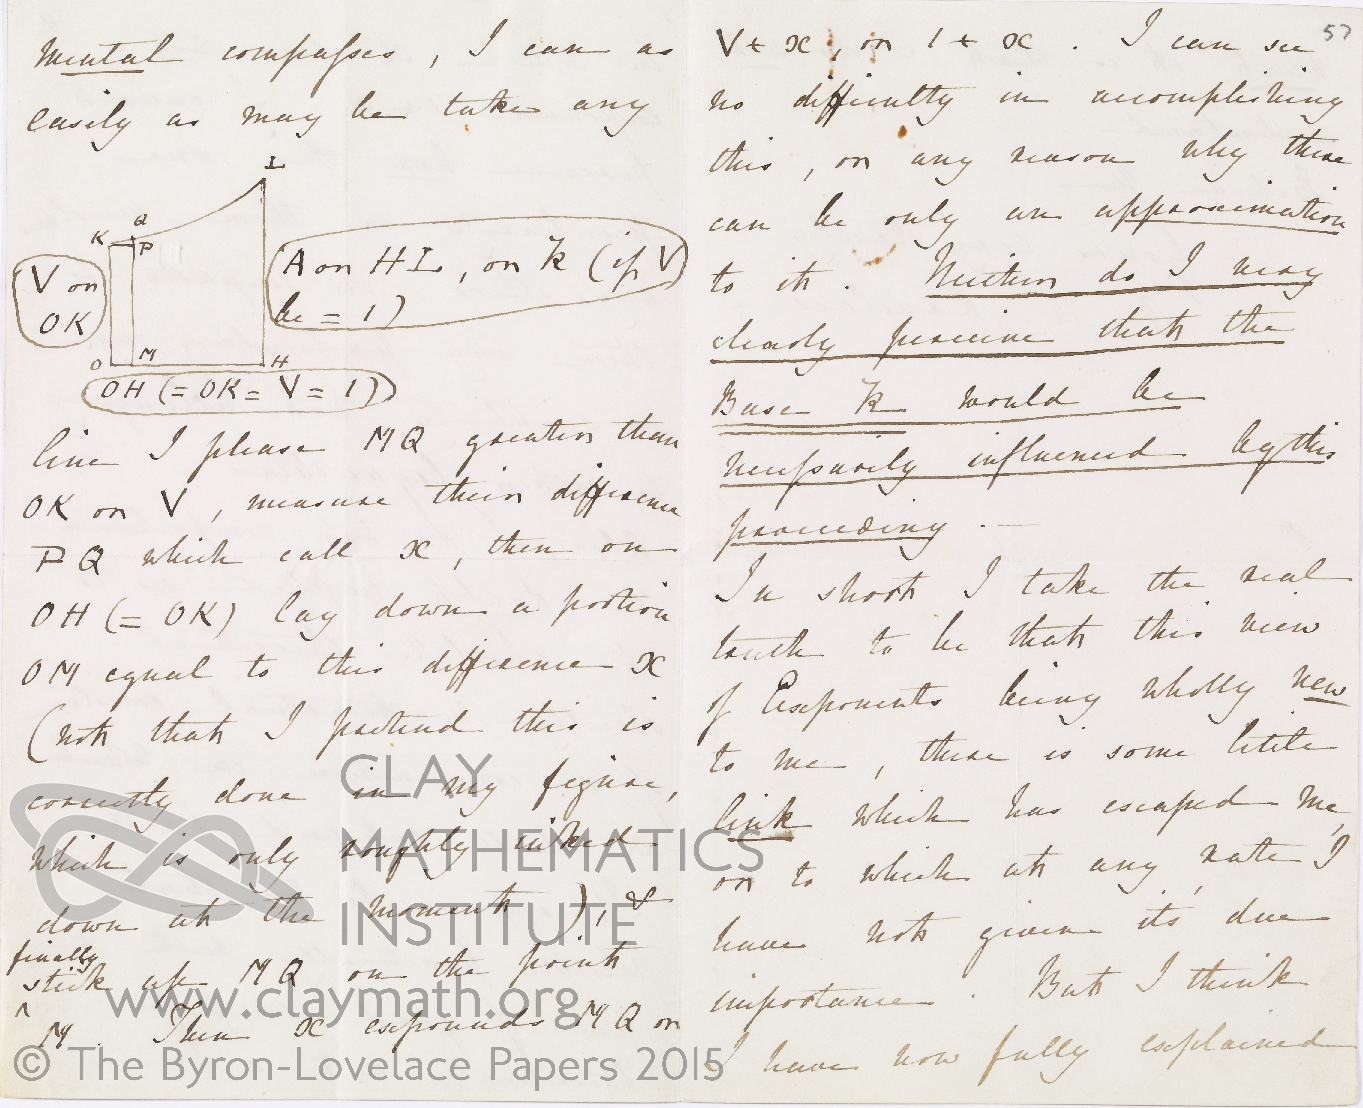 mental compasses, I can as
easily as may be take any
L
Q
K
P
V or
OK
A or HL, or k (if V
be = 1)
O
M
H
OH (= OK = V = 1)
line I please MQ greater than
OK or V, measure their difference
PQ which call x, then on
OH (= OK) lay down a portion
OM equal to this difference x
(not that I pretend this is
correctly done in my figure,
which is only roughly inked
down at the moment), &
finally
stick up MQ on the point
^
M. Then x expounds MQ or
57
V + x, or 1 + x. I can see
no difficulty in accomplishing
this, or any reason why there
can be only an approximation
to it. Neither do I very
clearly perceive that the
Base k would be
necessarily influenced by this
proceeding. —
In short I take the real
truth to be that this view
of Exponents being wholly new
to me, there is some little
link which has escaped me,
or to which at any rate I
have not given its due
importance. But I think
I have now fully explained
CLAY
MATHEMATICS
INSTITUTE
www.claymath.org
© The Byron-Lovelace Papers 2015